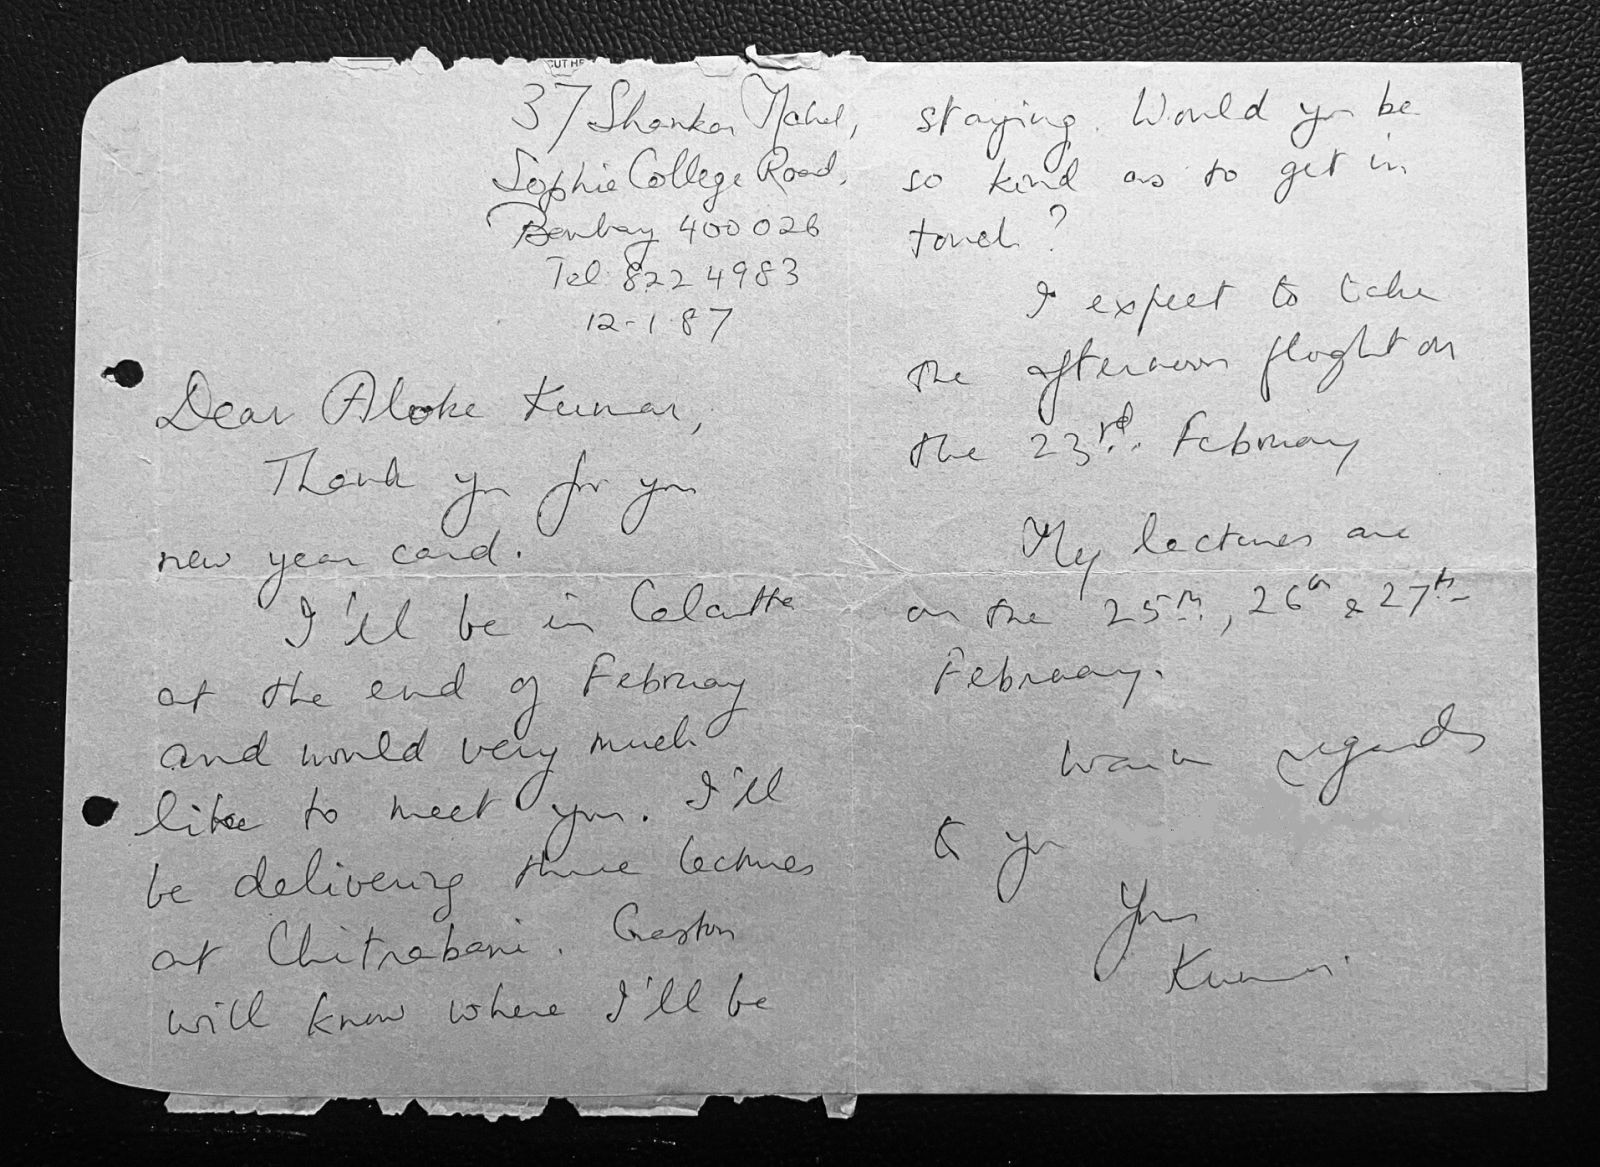 CUT HE
37 Shankar Mahal,
Sophia College Road,
Bombay 400 026
Tel: 822 4983
12-1-87
Dear Aloke Kumar,
Thank you for your
new year card.
I'll be in Calcutta
at the end of February
and would very much
like to meet you. I'll
be delivering three lectures
at Chitrabani. Gaston
will know where I'll be
staying. Would you be
so kind as to get in
touch?
I expect to take
the afternoon flight on
the 23rd. February
My lectures are
on the 25th, 26th & 27th
February.
Warm regards
to you
Yours
Kumar.